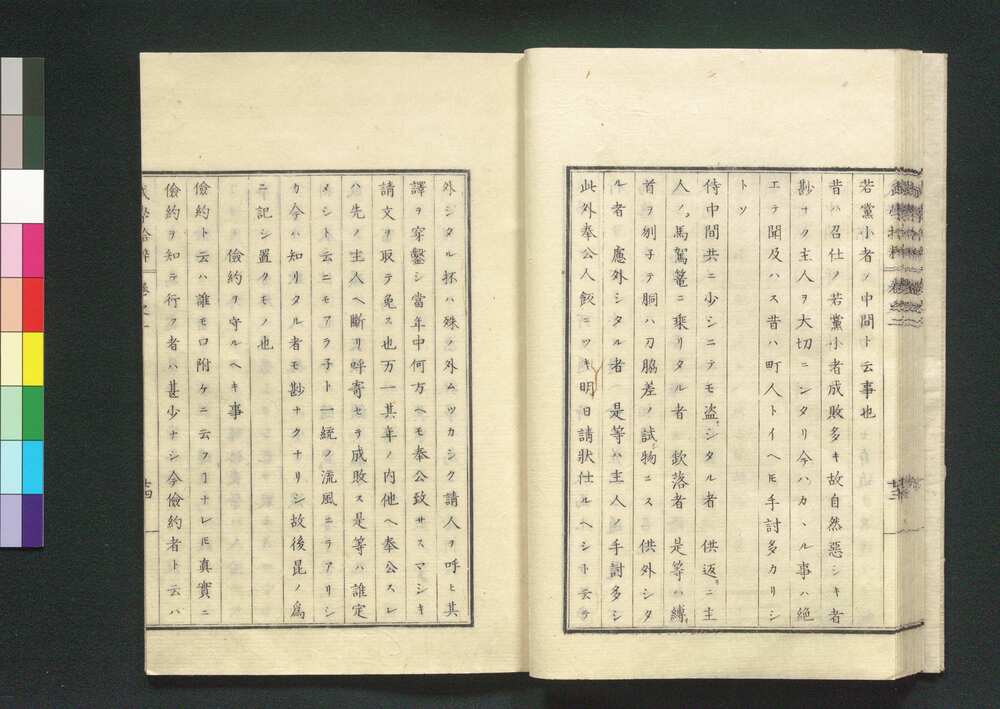 若黨小者ノ中間ト云事也
昔ハ召仕ノ若黨小者成敗多キ故自然惡シキ者
尠ナク主人ヲ大切ニシタリ今ハカヽル事ハ絶
エテ聞及ハス昔ハ町人トイヘ𪜈手討多カリシ
トソ
侍中間共ニ少シニテモ盗シタル者 供返ニ主
人ノ馬駕篭ニ乗リタル者 欽落者 是等ハ縛
首ヲ刎子テ胴ハ刀脇差ノ試物ニス 供外シタ
ル者 慮外シタル者 是等ハ主人ノ手討多シ
此外奉公人餃ニツキ明日請状仕ルヘシト云テ
外シタル抔ハ殊ノ外ムツカシク請人ヲ呼ヒ其
譯ヲ穿鑿シ當年中何方ヘモ奉公致サスマシキ
請文ヲ取テ免ス也万一其年ノ内他ヘ奉公スレ
ハ先ノ主人ヘ斷リ呼寄セラ成敗ス是等ハ誰定
メシト云ニモアラ子ト一統ノ流風ニラアリシ
カ今ハ知リタル者モ尠ナクナリシ故後昆ノ爲
ニ記シ置クモノ也
儉約ヲ守ルヘキ事
儉約ト云ハ誰モ口附ケニ云フヿナレ𪜈真實ニ
儉約ヲ知テ行フ者ハ甚少ナシ今儉約者ト云ハ
十四